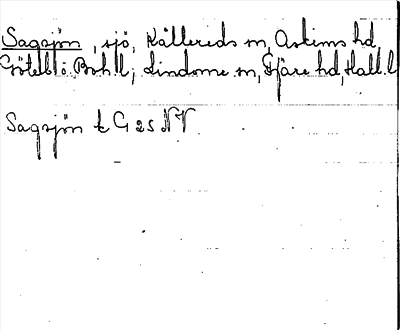 Sagsjön, sjö, Kållereds sn, Askims hd,
Göteb. o. Boh. l; Lindome sn, Fjäre hd, Hall. l.
Sagsjön tc G 25 NV